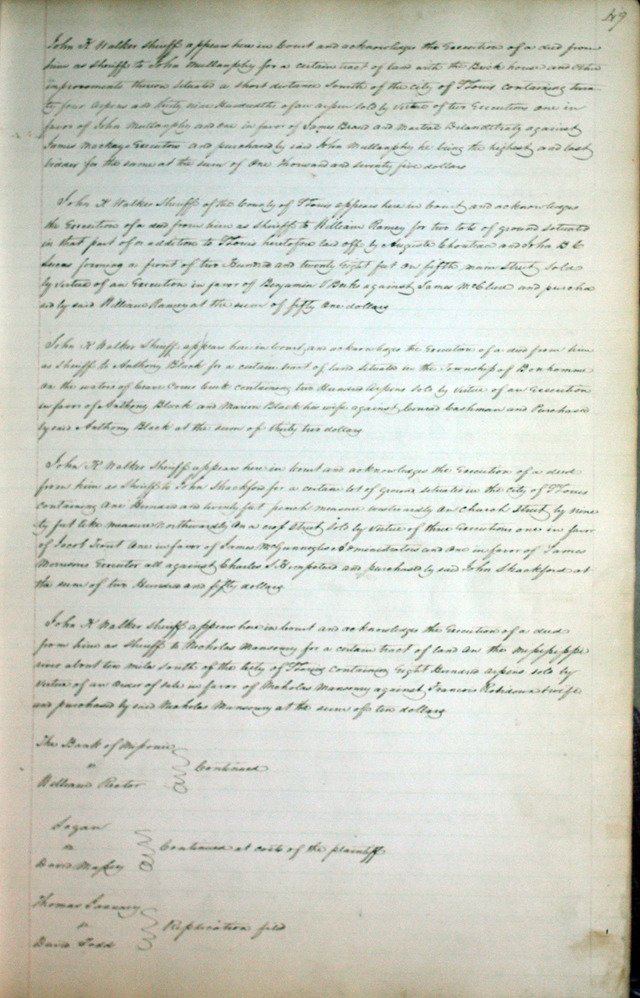 49
John K Walker Sheriff appears here in Court and acknowledges the Execution of a deed from
him as Sheriff to John Mullanphy for a certain tract of land with the Brick house and other
improvements thereon situated a short distance South of the city of St Louis containing twen
ty four arpens and thirty nine Hundredths of an arpen sold by virtue of two Executions one in
favor of John Mullanphy and one in favor of James Beard and Martial Brianditraly against
James Mackay Executors and purchased by said John Mullanphy he being the highest and last
bidder for the same at the sum of One thousand and seventy five dollars
John K Walker Sheriff of the County of St Louis appears here in Court and acknowledges
the Execution of a deed from him as Sheriff to William Ramey for two lots of ground situated
in that part of an addition to St Louis heretofore laid off by Auguste Chouteau and John B C
Lucas forming a front of two Hundred and twenty Eight feet on fifth main Street sold
by virtue of an Execution in favor of Benjamin against James McClure and purcha
sed by said William Ramey at the sum of fifty One dollars
John K Walker Sheriff appears here in Court and acknowledges the Execution of a deed from him
as Sheriff to Anthony Block for a certain tract of land situated in the Township of Bonhomme
on the waters of Creve Coeur creek containing two Hundred arpens sold by virtue of an Execution
in favor of Anthony Block and Block his wife against Cashman and Purchased
by said Anthony Block at the sum of thirty two dollars
John K Walker Sheriff appears here in Court and acknowledges the Execution of a deed
from him as Sheriff to John Shackford for a certain lot of ground situated in the city of St Louis
containing One Hundred and twenty feet french measure westwardly On Church Street by nine
ty feet like measure Northwardly On a cross Street sold by virtue of three Executions one in favor
of Jacob Trout One in favor of James Administrators and one in favor of James
Morrisons Executor all against Charles S Hempstead and purchased by said John Shackford at
the sum of two Hundred and fifty dollars
John K Walker Sheriff appears here in Court and acknowledges the Execution of a deed
from him as Sheriff to Nicholas Mansoney for a certain tract of land on the Mississippi
river about ten mile south of the City of St Louis containing Eight Hundred arpens sold by
virtue of an order of sale in favor of Nicholas Mansoney against Francois Robidoux & wife
and purchased by said Nicholas Mansoney at the sum of ten dollars
The Bank of Missouri
vs
Continued
William Rector
Logan
vs
Continued at costs of the plaintiff
David Massey
Thomas January
vs
Replication filed
David Todd